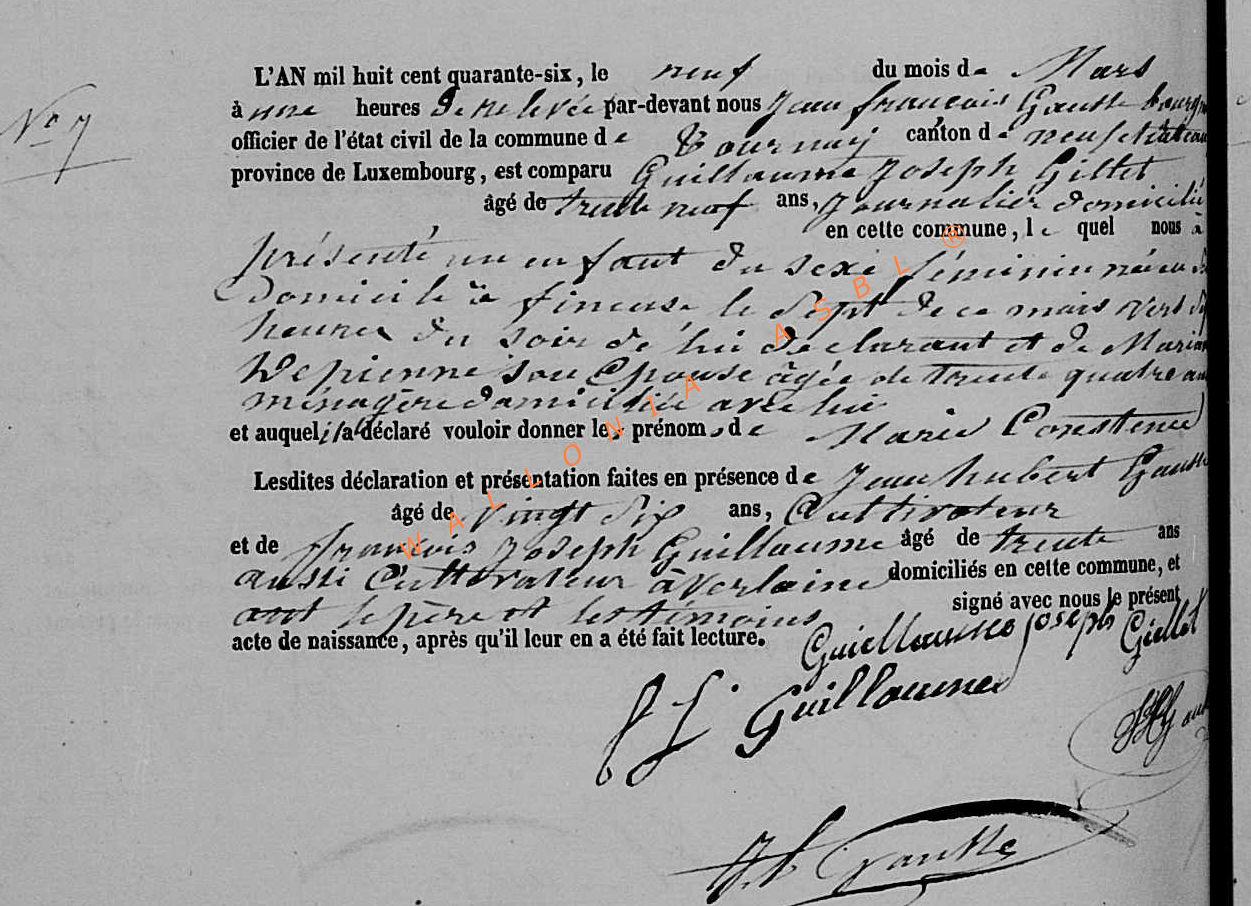 N° 7
L'AN mil huit cent quarante-six, le neuf du mois de Mars
à une heures de relevée par-devant nous Jean françois Gausse bourgm
officier de l'état civil de la commune de Tournay canton de neufchateau
province de Luxembourg, est comparu Guillaume Joseph Gillet
âgé de trente neuf ans, Journalier domicilié
en cette commune, le quel nous à
présenté un enfant du sexe féminin né en
Domicile à le Sept de ce mois vers
heures du soir de lui déclarant et de Marian
Depienne son Epouse âgée de trente quatre an
ménagère domiciliée avec lui
et auquel il a déclaré vouloir donner les prénoms de Marie Constence
Lesdites déclaration et présentation faites en présence de Jean hubert Gausse
âgé de vingt Six ans, Cultivateur
et de françois Joseph Guillaume âgé de trente ans
aussi Cultivateur à Verlaine domiciliés en cette commune, et
ont le père et les témoins signé avec nous le présent
acte de naissance, après qu'il leur en a été fait lecture.
Guiellaume joseph Giellet
f J. Guillaume
JH Gaus
J. f. Gausse
WALLONIA ASBL ®